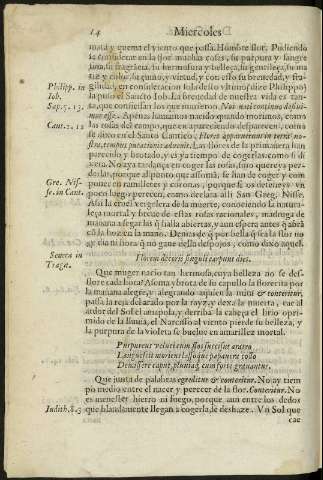 14 Miercoles
mata y quema el viento que passa. Hombre flor. Pudiendo
se considerar en la flor muchas cosas, su purpura y sangre
su fragrancia, su hermosura y belleza, su gentileza, su ma
tiz y color, su quáto, y virtud, y con esso su breuedad, y fra-
Philipp. in gilidad, en consideracion solo desto y
Iob. la puso el Sancto Iob. La breuedad de nuestra vida es tan-
Sap. 5. 13. ta, que confiessan los que murieron. Nos nati continuò desiui-
mus esse. Apenas hauemos nacido quando morimos, como
Cant. 2. 12 las rosas del campo, que en apareciendo desparecen, como
se dixo en el Santo Cantico. Flores apparuerunt in terra no-
stra, tempus putationis aduenit. Las flores de la primauera han
parecido y brotado, y es ya tiempo de cogerlas como si di
xera. No aya trabajo en coger las rosas, sino querays per-
derlas, porque al punto que assoman, se han de coger y com
Gre. Nis- poner en ramilletes y coronas, porque si os deteneys vn
se. in Cant. poco luego perecen, como declara alli San Greg. Nisse.
Assi la cruel vengadera de la muerte, conociendo la natura-
leza mortal y breue de estas rosas racionales, madruga de
mañana a segar las q̃ halla abiertas, y aun espera antes q̃ abrã
cõ la hoz en la mano. Demas de q̃ por bella q̃ sea la flor no
ay dia ni hora q̃ no gane della despojos, como dixo aquel.
Seneca in Florem decoris singuli carpunt dies.
Traga.
Que muger nacio tan hermosa, cuya belleza no se des-
flore cada hora? Asoma y brota de su capullo la florecita por
la mañana alegre, y alegrando aquien la mira & conteritur,
passa la reja del arado por la rayz, y dexa la muerta, cae al
ardor del Sol el amapola, y derriba la cabeça el lirio opri-
mido de la lluuia, el Narcisso al viento pierde su belleza, y
la purpura de la violeta se buelue en amarillez mortal.
Purpureus veluti cum flos succisus aratro
Languescit moriens lassoue papauera collo
Demissere caput, pluuia cum fortè grauantur.
Que junta de palabras egreditur & conteritur. No ay tiem
po medio entre el nacer, y perecer de la flor. Conteritur. No
es menester hierro ni fuego, porque aun entre los dedos
Iudith. 8. 3 que blandamente llegan a cogerla, se deshaze. Vn Sol que
cae